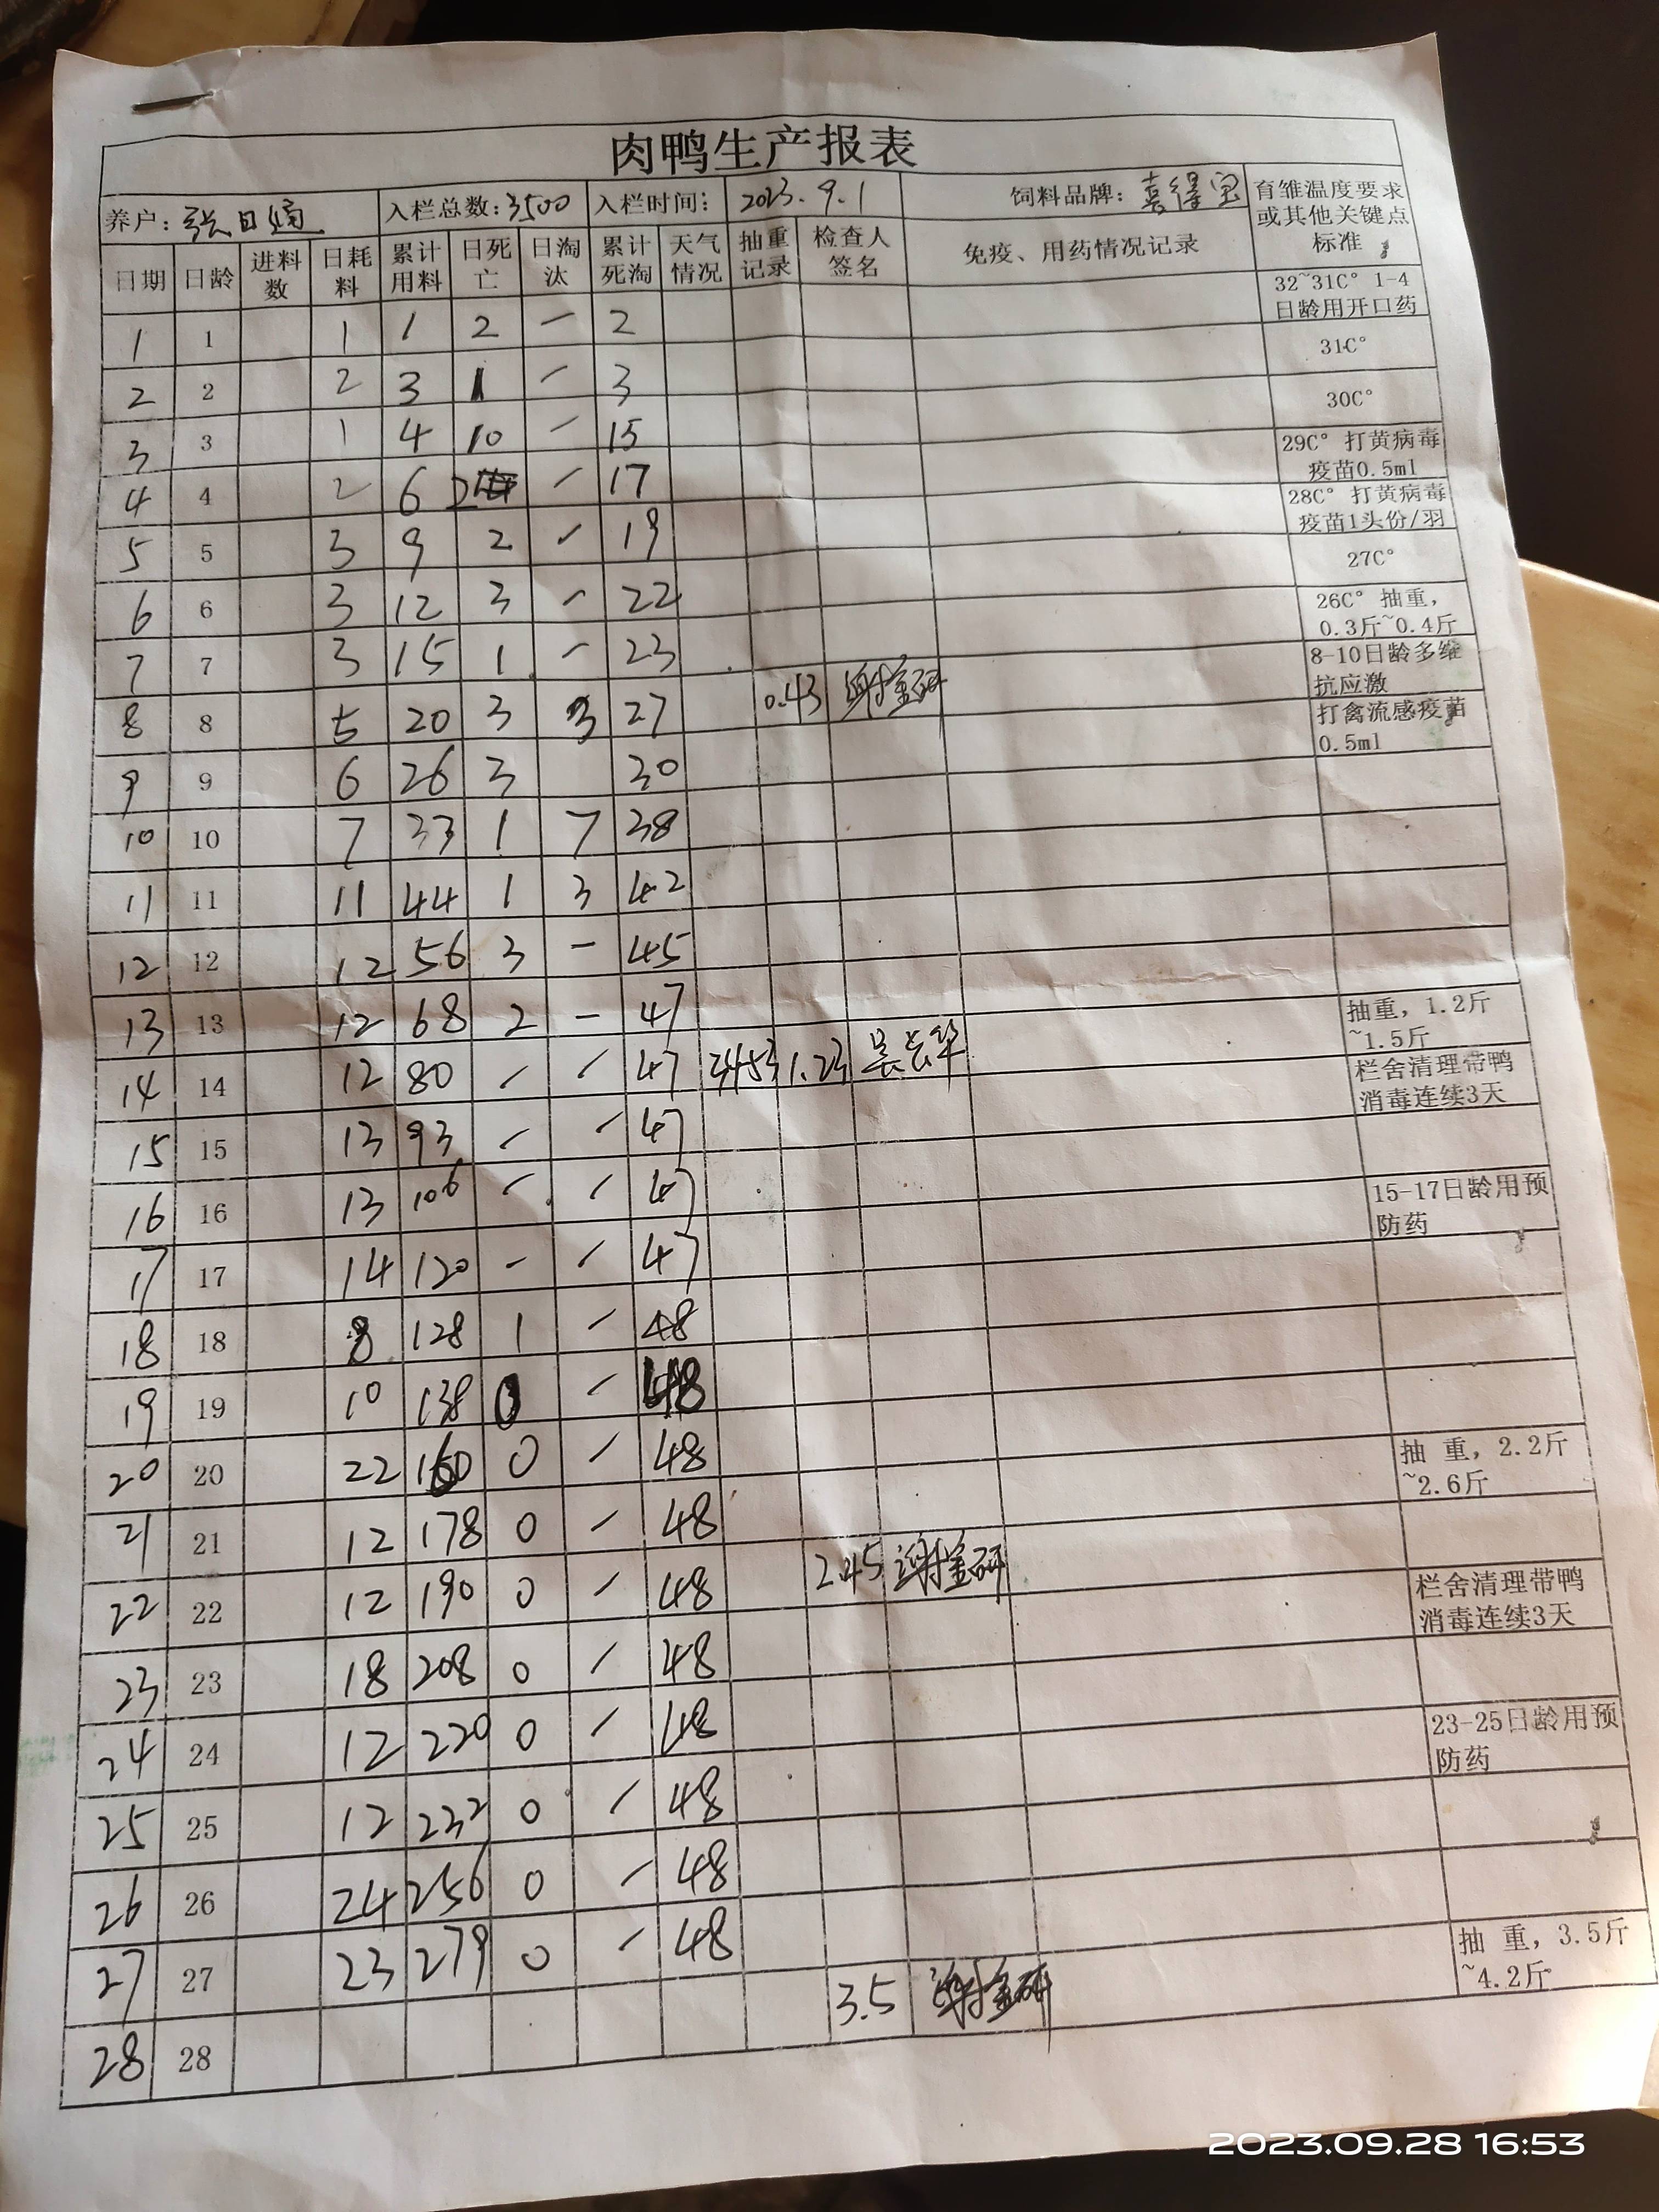 肉鸭生产报表
养户： 入栏总数:3500 入栏时间: 2023.9.1 饲料品牌：喜得宝 育雏温度要求或其他关键点标准
日期 日龄 进料数 日耗料 累计用料 日死亡 日淘汰 累计死淘 天气情况 抽重记录 检查人签名 免疫、用药情况记录
1 1 1 1 2 - 2 32~31C° 1-4日龄用开口药
2 2 2 3 1 - 3 31C°
3 3 1 4 10 - 15 30C°
4 4 2 6 2 - 17 29C° 打黄病毒疫苗0.5ml
5 5 3 9 2 - 19 28C° 打黄病毒疫苗1头份/羽
6 6 3 12 3 - 22 27C°
7 7 3 15 1 - 23 26C° 抽重，0.3斤~0.4斤
8 8 5 20 3 3 27 0.43 8-10日龄多维抗应激
9 9 6 26 3 30 打禽流感疫苗0.5ml
10 10 7 33 1 7 38
11 11 11 44 1 3 42
12 12 12 56 3 - 45
13 13 12 68 2 - 47
14 14 12 80 - - 47 3453 1.23 吴长华 抽重，1.2斤~1.5斤
15 15 13 93 - - 47 栏舍清理带鸭消毒连续3天
16 16 13 106 - - 47
17 17 14 120 - - 47 15-17日龄用预防药
18 18 8 128 1 - 48
19 19 10 138 0 - 48
20 20 22 160 0 - 48
21 21 12 178 0 - 48 抽 重，2.2斤~2.6斤
22 22 12 190 0 - 48 2.45
23 23 18 208 0 - 48 栏舍清理带鸭消毒连续3天
24 24 12 220 0 - 48
25 25 12 232 0 - 48 23-25日龄用预防药
26 26 24 256 0 - 48
27 27 23 279 0 - 48
28 28 3.5 抽 重，3.5斤~4.2斤
2023.09.28 16:53